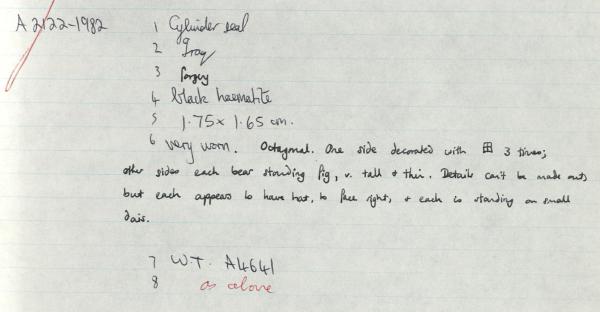 A 2122-1982
1 Cylinder seal
2 Iraq
3 forgery
4 black haematite
5 1.75 x 1.65 cm.
6 very worn. Octagonal. One side decorated with 田 3 times;
other sides each bear standing fig, v. tall & thin. Details can't be made out,
but each appears to have hat, to face right, & each is standing on small
dais.
7 W.T. A4641
8 as above